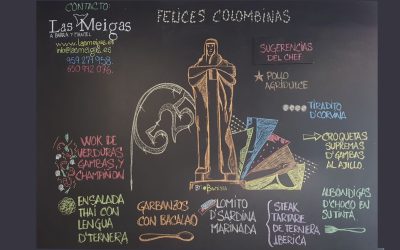 CONTACTO:
LAS MEIGAS
A BARRA Y MANTEL
www.lasmeigas.es
959 271 958
650 942 076
FELICES COLOMBINAS
SUGERENCIAS
DEL CHEF
POLLO
AGRIDULCE
TIRADITO
D'CORVINA
CROQUETAS
SUPREMAS
D'GAMBAS
AL AJILLO
ALBONDIGAS
D'CHOCO EN
SU TINTA
WOK DE
VERDURAS
GAMBAS, Y
CHAMPIÑON
ENSALADA
THAI CON
LENGUA
D'TERNERA
GARBANZOS
CON BACALAO
LOMITO
D'SARDINA
MARINADA
STEAK
TARTARE
DE TERNERA
IBERICA